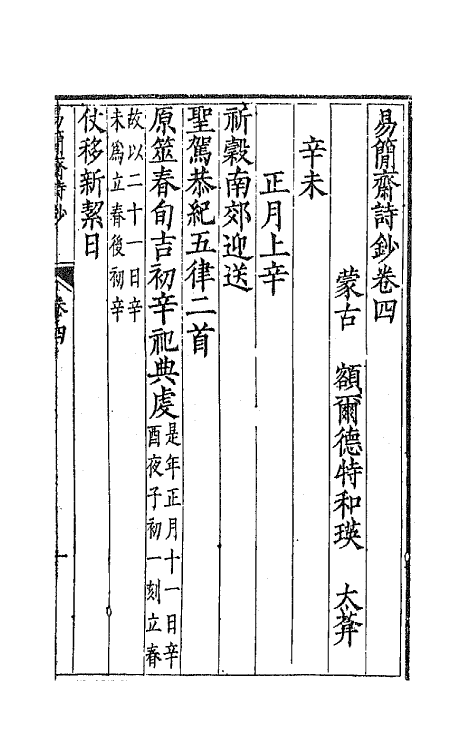 易簡齋詩鈔卷四
蒙古　額爾德特和瑛　太葊
辛未
正月上辛
祈穀南郊迎送
聖駕恭紀五律二首
原筮春旬吉初辛祀典虔是年正月十一日辛
酉夜子初一刻立春
故以二十一日辛
未為立春後初辛
仗移新絜日
易簡齋詩鈔
卷四
一